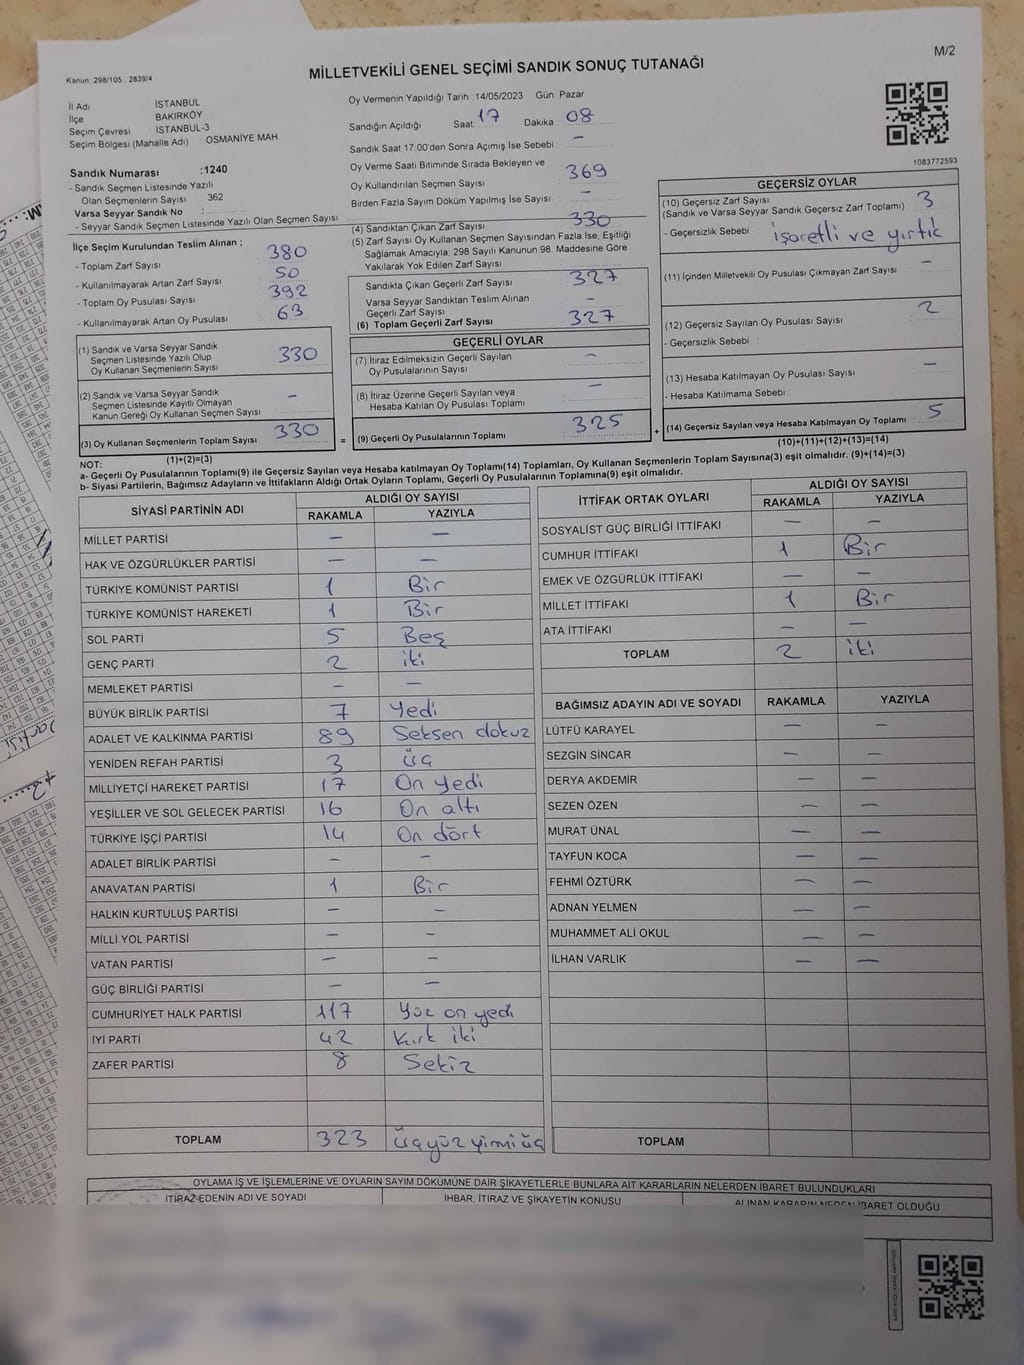 M/2
Kanun: 298/105 2839/4
MİLLETVEKİLİ GENEL SEÇİMİ SANDIK SONUÇ TUTANAĞI
İl Adı İSTANBUL
İlçe BAKIRKÖY
Seçim Çevresi İSTANBUL-3
Seçim Bölgesi (Mahalle Adı) OSMANİYE MAH
Sandık Numarası :1240
- Sandık Seçmen Listesinde Yazılı
Olan Seçmenlerin Sayısı : 362
Varsa Seyyar Sandık No :
- Seyyar Sandık Seçmen Listesinde Yazılı Olan Seçmen Sayısı
Oy Vermenin Yapıldığı Tarih :14/05/2023 Gün: Pazar
Sandığın Açıldığı Saat: 17 Dakika : 08
Sandık Saat 17:00'den Sonra Açımış İse Sebebi : —
Oy Verme Saati Bitiminde Sırada Bekleyen ve
Oy Kullandırılan Seçmen Sayısı 369
Birden Fazla Sayım Döküm Yapılmış İse Sayısı —
1083772593
İlçe Seçim Kurulundan Teslim Alınan ;
- Toplam Zarf Sayısı 380
- Kullanılmayarak Artan Zarf Sayısı 50
- Toplam Oy Pusulası Sayısı 392
- Kullanılmayarak Artan Oy Pusulası 63
(1) Sandık ve Varsa Seyyar Sandık
Seçmen Listesinde Yazılı Olup
Oy Kullanan Seçmenlerin Sayısı 330
(2) Sandık ve Varsa Seyyar Sandık
Seçmen Listesinde Kayıtlı Olmayan
Kanun Gereği Oy Kullanan Seçmen Sayısı —
(3) Oy Kullanan Seçmenlerin Toplam Sayısı 330
(1)+(2)=(3)
(4) Sandıktan Çıkan Zarf Sayısı 330
(5) Zarf Sayısı Oy Kullanan Seçmen Sayısından Fazla İse, Eşitliği
Sağlamak Amacıyla, 298 Sayılı Kanunun 98. Maddesine Göre
Yakılarak Yok Edilen Zarf Sayısı
Sandıkta Çıkan Geçerli Zarf Sayısı 327
Varsa Seyyar Sandıktan Teslim Alınan
Geçerli Zarf Sayısı —
(6) Toplam Geçerli Zarf Sayısı 327
GEÇERLİ OYLAR
(7) İtiraz Edilmeksizin Geçerli Sayılan
Oy Pusulalarının Sayısı —
(8) İtiraz Üzerine Geçerli Sayılan veya
Hesaba Katılan Oy Pusulası Toplamı —
= (9) Geçerli Oy Pusulalarının Toplamı 325
GEÇERSİZ OYLAR
(10) Geçersiz Zarf Sayısı 3
(Sandık ve Varsa Seyyar Sandık Geçersiz Zarf Toplamı)
- Geçersizlik Sebebi : işaretli ve yırtık
(11) İçinden Milletvekili Oy Pusulası Çıkmayan Zarf Sayısı —
(12) Geçersiz Sayılan Oy Pusulası Sayısı 2
- Geçersizlik Sebebi :
(13) Hesaba Katılmayan Oy Pusulası Sayısı —
- Hesaba Katılmama Sebebi :
+ (14) Geçersiz Sayılan veya Hesaba Katılmayan Oy Toplamı 5
(10)+(11)+(12)+(13)=(14)
NOT:
a- Geçerli Oy Pusulalarının Toplamı(9) ile Geçersiz Sayılan veya Hesaba katılmayan Oy Toplamı(14) Toplamları, Oy Kullanan Seçmenlerin Toplam Sayısına(3) eşit olmalıdır. (9)+(14)=(3)
b- Siyasi Partilerin, Bağımsız Adayların ve İttifakların Aldığı Ortak Oyların Toplamı, Geçerli Oy Pusulalarının Toplamına(9) eşit olmalıdır.
SİYASİ PARTİNİN ADI ALDIĞI OY SAYISI
RAKAMLA YAZIYLA
MİLLET PARTİSİ — —
HAK VE ÖZGÜRLÜKLER PARTİSİ — —
TÜRKİYE KOMÜNİST PARTİSİ 1 Bir
TÜRKİYE KOMÜNİST HAREKETİ 1 Bir
SOL PARTİ 5 Beş
GENÇ PARTİ 2 iki
MEMLEKET PARTİSİ — —
BÜYÜK BİRLİK PARTİSİ 7 Yedi
ADALET VE KALKINMA PARTİSİ 89 Seksen dokuz
YENİDEN REFAH PARTİSİ 3 üç
MİLLİYETÇİ HAREKET PARTİSİ 17 On yedi
YEŞİLLER VE SOL GELECEK PARTİSİ 16 On altı
TÜRKİYE İŞÇİ PARTİSİ 14 On dört
ADALET BİRLİK PARTİSİ — —
ANAVATAN PARTİSİ 1 Bir
HALKIN KURTULUŞ PARTİSİ — —
MİLLİ YOL PARTİSİ — —
VATAN PARTİSİ — —
GÜÇ BİRLİĞİ PARTİSİ — —
CUMHURİYET HALK PARTİSİ 117 Yüz on yedi
İYİ PARTİ 42 Kırk iki
ZAFER PARTİSİ 8 Sekiz
TOPLAM 323 üçyüzyirmiüç
İTTİFAK ORTAK OYLARI ALDIĞI OY SAYISI
RAKAMLA YAZIYLA
SOSYALİST GÜÇ BİRLİĞİ İTTİFAKI — —
CUMHUR İTTİFAKI 1 Bir
EMEK VE ÖZGÜRLÜK İTTİFAKI — —
MİLLET İTTİFAKI 1 Bir
ATA İTTİFAKI — —
TOPLAM 2 iki
BAĞIMSIZ ADAYIN ADI VE SOYADI RAKAMLA YAZIYLA
LÜTFÜ KARAYEL — —
SEZGİN SİNCAR — —
DERYA AKDEMİR — —
SEZEN ÖZEN — —
MURAT ÜNAL — —
TAYFUN KOCA — —
FEHMİ ÖZTÜRK — —
ADNAN YELMEN — —
MUHAMMET ALİ OKUL — —
İLHAN VARLIK — —
TOPLAM
OYLAMA İŞ VE İŞLEMLERİNE VE OYLARIN SAYIM DÖKÜMÜNE DAİR ŞİKAYETLERLE BUNLARA AİT KARARLARIN NELERDEN İBARET BULUNDUKLARI
İTİRAZ EDENİN ADI VE SOYADI İHBAR, İTİRAZ VE ŞİKAYETİN KONUSU ALINAN KARARIN NEDEN İBARET OLDUĞU